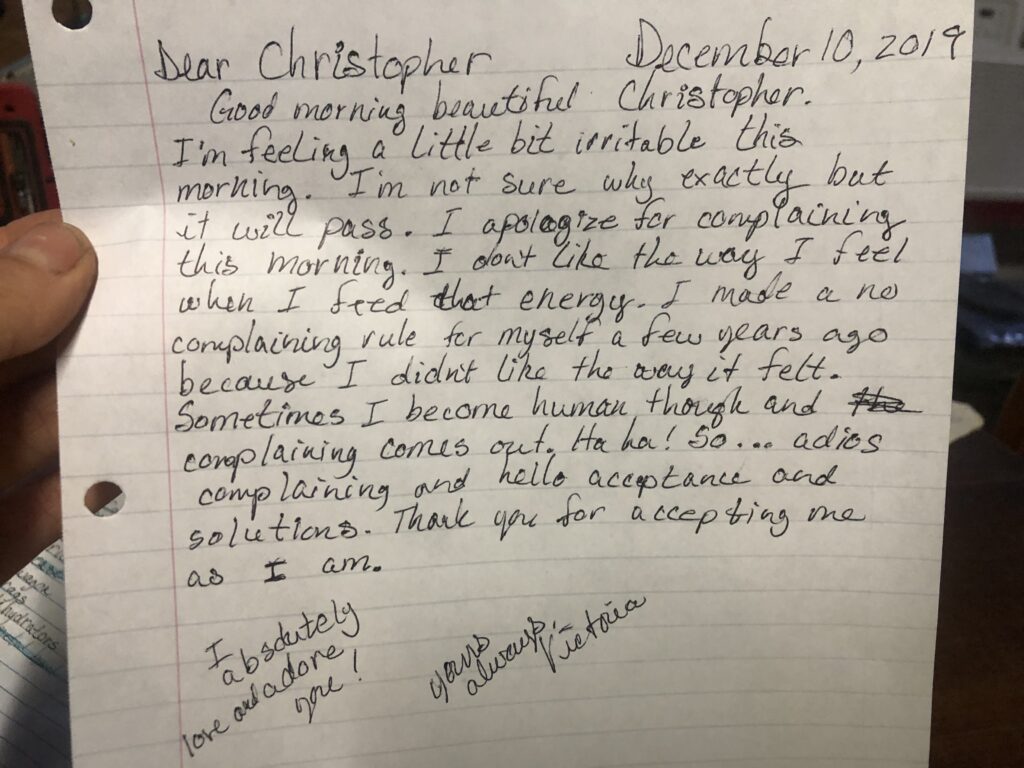 Dear Christopher December 10, 2019
Good morning beautiful Christopher.
I'm feeling a little bit irritable this
morning. I'm not sure why exactly but
it will pass. I apologize for complaining
this morning. I don't like the way I feel
when I feed that energy. I made a no
complaining rule for myself a few years ago
because I didn't like the way it felt.
Sometimes I become human though and the
complaining comes out. Ha ha! So... adios
complaining and hello acceptance and
solutions. Thank you for accepting me
as I am.
I
absolutely
love and adore
you!
yours
always,
Victoria
hydradons